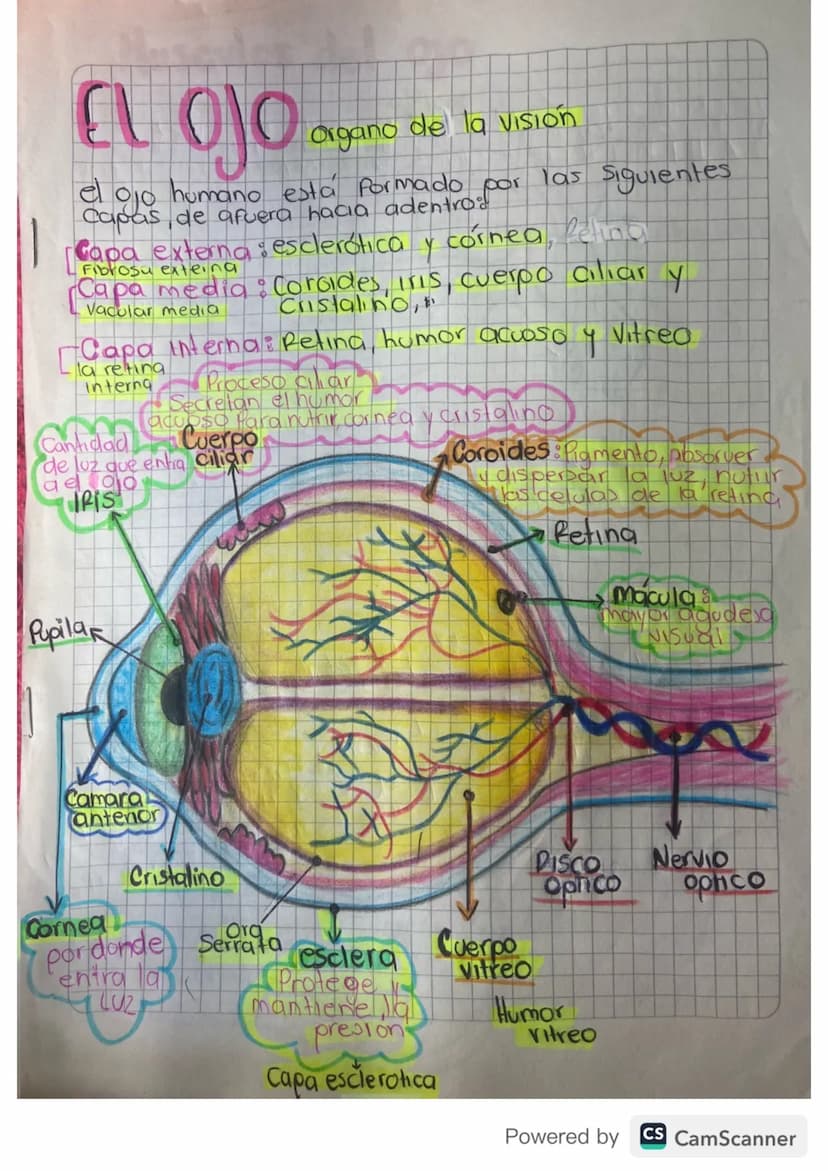 El OJO organo de la visión
el ojo humano está formado por las siguientes
capas, de afuera hacia adentro:
Capa externa: esclerótica y córnea, Retina
Fibrosa externa
Capa media: Coroides, iris, cuerpo ciliar y
Vacular media Cristalino,
Capa Interna: Retina, humor acuoso y Vitreo
la retina
interna
Proceso ciliar
Secretan el humor
acuoso para nutrir cornea y cristalino
Cuerpo
ciliar
Cantidad
de luz que entra
a el ojo
IRIS
Coroides: Pigmento, absorver
y dispersar la luz, nutrir
las celulas de la retina
Retina
Mácula:
mayor agudeza
visual
Pupila
Camara
anterior
Cristalino
Cornea
por donde
entra la
luz
Ora
Serrata
esclera
Protege y
mantiene la
presión
Capa esclerotica
Cuerpo
vitreo
Humor
vitreo
Disco
optico
Nervio
optico
Powered by CS CamScanner